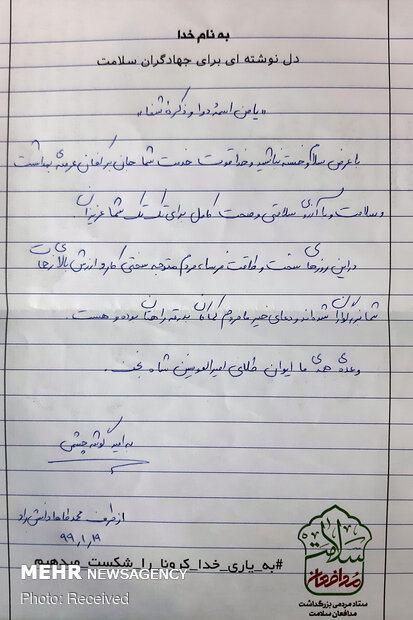 به نام خدا
دل نوشته ای برای جهادگران سلامت
«یا من اسمه دوا و ذکره شفا»
با عرض سلام و خسته نباشید و خدا قوت خدمت شما جان بر کفان عرصه‌ی بهداشت
و سلامت و با آرزوی سلامتی و صحت کامل برای تک تک شما عزیزان
در این روزهای سخت و طاقت فرسا مردم متوجه سختی کار و ارزش بالای زحمات
شما بزرگواران شده‌اند و دعای خیر ما مردم کماکان بدرقه راهتان بوده و هست.
وعده‌ی ما ایوان طلای امیرالمومنین شاه نجف.
به امید گوشه چشمی
از طرف محمد طاها دانش راد
۹۹,۱,۱۹
#به_یاری_خدا_کرونا_را_شکست_میدهیم
سلامت
مدافعان
ستاد مردمی بزرگداشت
مدافعان سلامت
MEHR NEWSAGENCY
Photo: Received